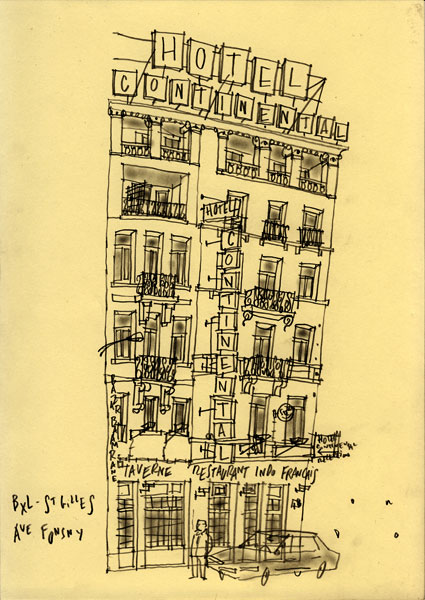 HOTEL
CONTINENTAL
HOTEL
CONTINENTAL
TAVERNE RESTAURANT INDO FRANÇAIS
HOTEL
BXL - ST GILLES
AVE FONSNY